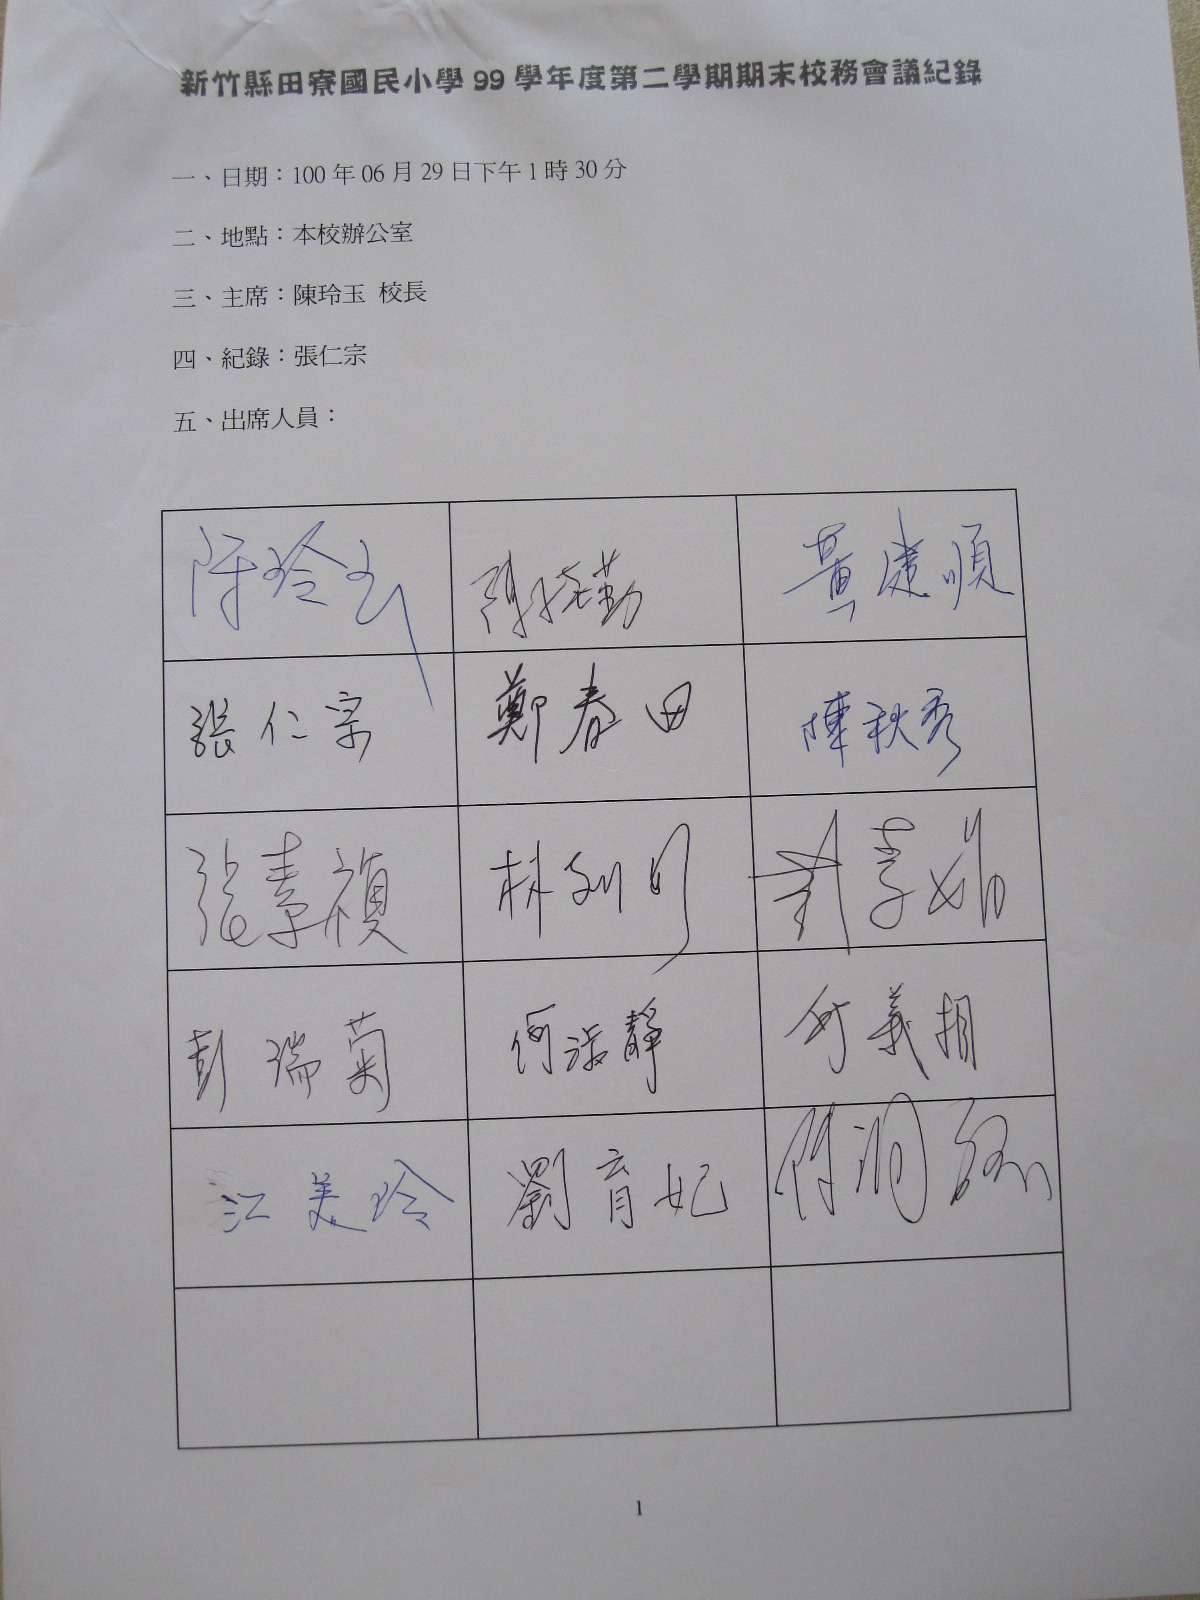 新竹縣田寮國民小學 99 學年度第二學期期末校務會議紀錄
一、日期：100 年 06 月 29 日下午 1 時 30 分
二、地點：本校辦公室
三、主席：陳玲玉 校長
四、紀錄：張仁宗
五、出席人員：
陳玲玉 陳曉勤 黃建順
張仁宗 鄭春田 陳秋秀
張素禎 林 劉
彭瑞菊 何淑靜 何義相
江美玲 劉育妃 陳
1